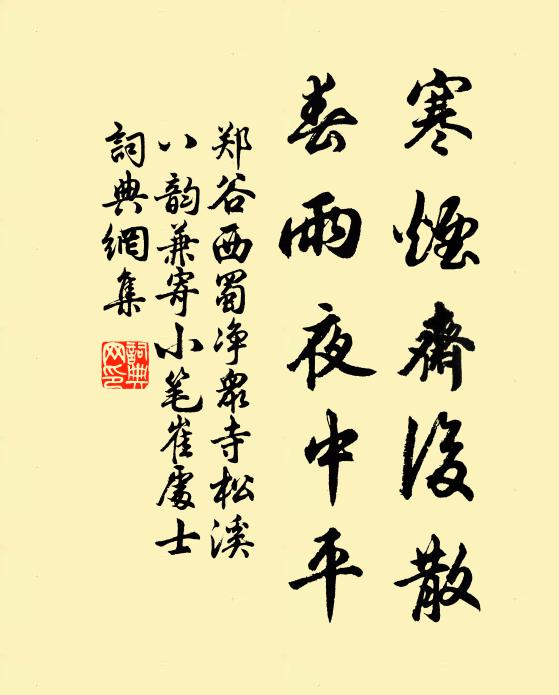 寒煙齋後散
春雨夜中平
郑谷西蜀净眾寺松溪
八韵兼寄小笔崔處士
詞典網集
詞典网印